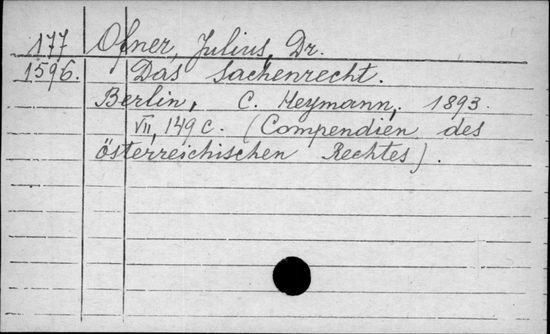 177 Ofner, Julius, Dr.
1596. Das Sachenrecht.
Berlin, C. Heymann, 1893.
VII, 149 c. (Compendien des
österreichischen Rechtes).